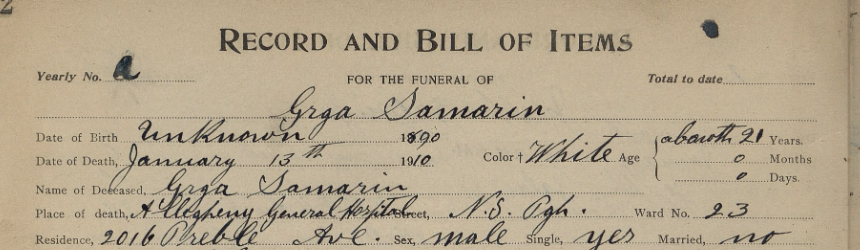 2
RECORD AND BILL OF ITEMS
Yearly No. a FOR THE FUNERAL OF Total to date
Grga Samarin
Date of Birth Unknown 1890
Date of Death, January 13th 1910 Color † White Age abauth 21 Years.
0 Months
0 Days.
Name of Deceased, Grga Samarin
Place of death, Allegheny General Hospital Street, N.S. Pgh. Ward No. 23
Residence, 2016 Preble Ave. Sex, male Single, yes Married, no